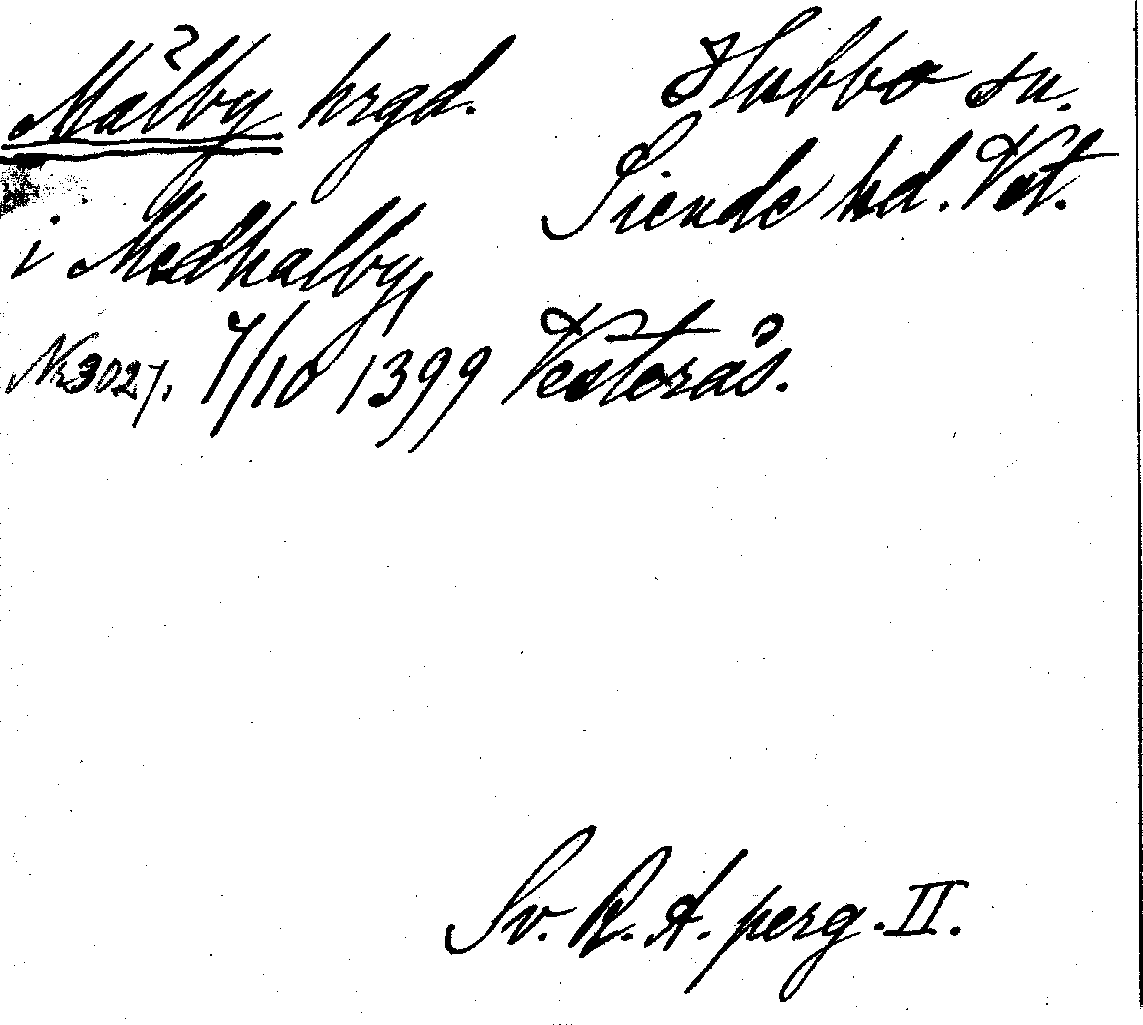 Målby hrgd.
Hubbo sn.
Siende hd. Vst.
i Medhalby,
Nr 3027. 7/10 1399 Vesterås.
Sv. R. A. perg. II.